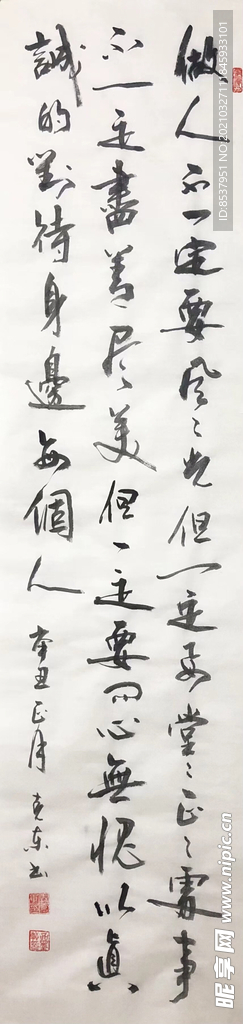 做人不一定要风〻光但一定要堂〻正〻處事
不一定盡善尽美但一定要问心無愧以真
誠的對待身邊每個人
辛丑正月 克东书
ID:8537951 NO:20210327115845933101
昵享网 www.nipic.cn